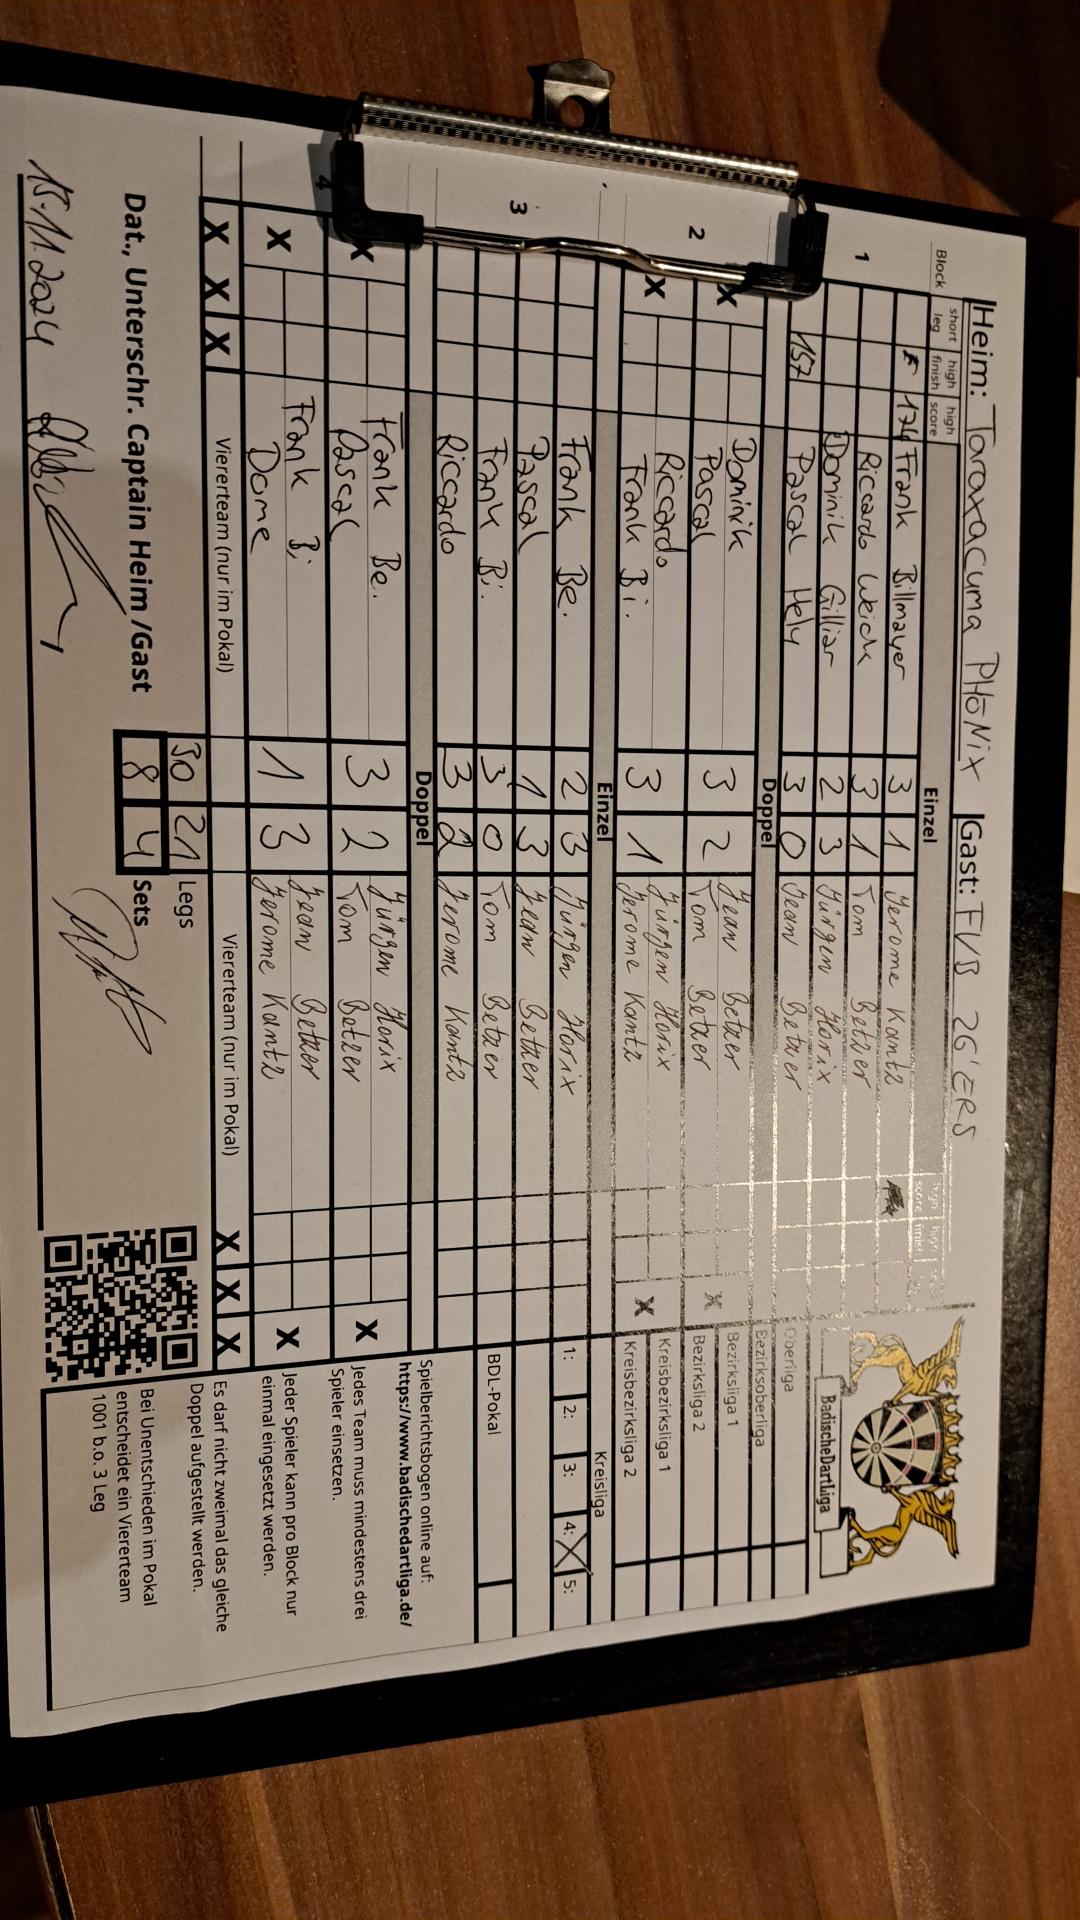 Heim: Taraxacuma PHÖNIX Gast: FVB 26'ERS
Block short leg high finish high score Einzel high score
1 174 Frank Billmayer 3 1 Jerome Kantz
Riccardo Weick 3 1 Tom Betzer
Dominik Gilliar 2 3 Jürgen Horix
157 Pascal Hely 3 0 Jean Betzer
Doppel
2 X Dominik 3 2 Jean Betzer X
Pascal Tom Betzer
X Riccardo 3 1 Jürgen Horix X
Frank Bi. Jerome Kantz
Einzel
3 Frank Be. 2 3 Jürgen Horix
Pascal 1 3 Jean Betzer
Frank Bi. 3 0 Tom Betzer
Riccardo 3 2 Jerome Kantz
Doppel
4 X Frank Be. 3 2 Jürgen Horix X
Pascal Tom Betzer
X Frank Bi 1 3 Jean Betzer X
Dome Jerome Kantz
X X X Viererteam (nur im Pokal) Viererteam (nur im Pokal) X X X
30 21 Legs
Dat., Unterschr. Captain Heim /Gast 8 4 Sets
15.11.2024
BadischeDartLiga
Oberliga
Bezirksoberliga
Bezirksliga 1
Bezirksliga 2
Kreisbezirksliga 1
Kreisbezirksliga 2
Kreisliga
1: 2: 3: 4: X 5:
BDL-Pokal
Spielberichtsbogen online auf:
https://www.badischedartliga.de/
Jedes Team muss mindestens drei
Spieler einsetzen.
Jeder Spieler kann pro Block nur
einmal eingesetzt werden.
Es darf nicht zweimal das gleiche
Doppel aufgestellt werden.
Bei Unentschieden im Pokal
entscheidet ein Viererteam
1001 b.o. 3 Leg